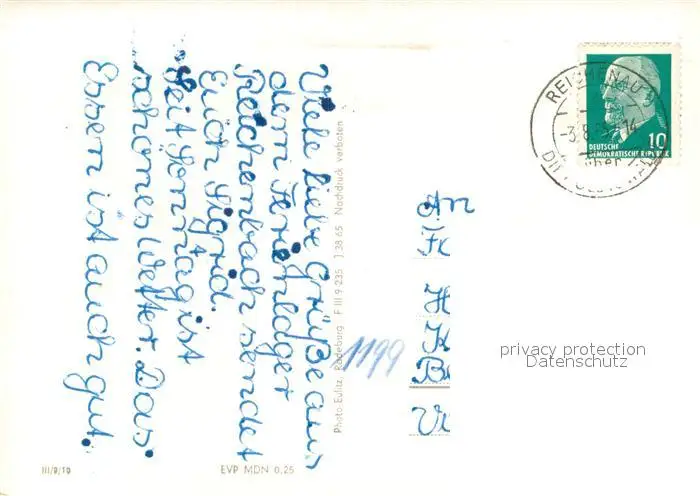 Viele liebe Grüße aus
dem Ferienlager
Reichenbach sendet
Euch Sigrid.
Seit Sonntag ist
schönes Wetter. Das
Essen ist auch gut.
Photo: Eulitz, Radeburg F III 9-235 J 38 65 Nachdruck verboten
III/9/10
EVP MDN 0,25
1199
An
H
K
REICHENAU
-3.8. 14
über
DEUTSCHE
DEMOKRATISCHE REPUBLIK
10
privacy protection
Datenschutz